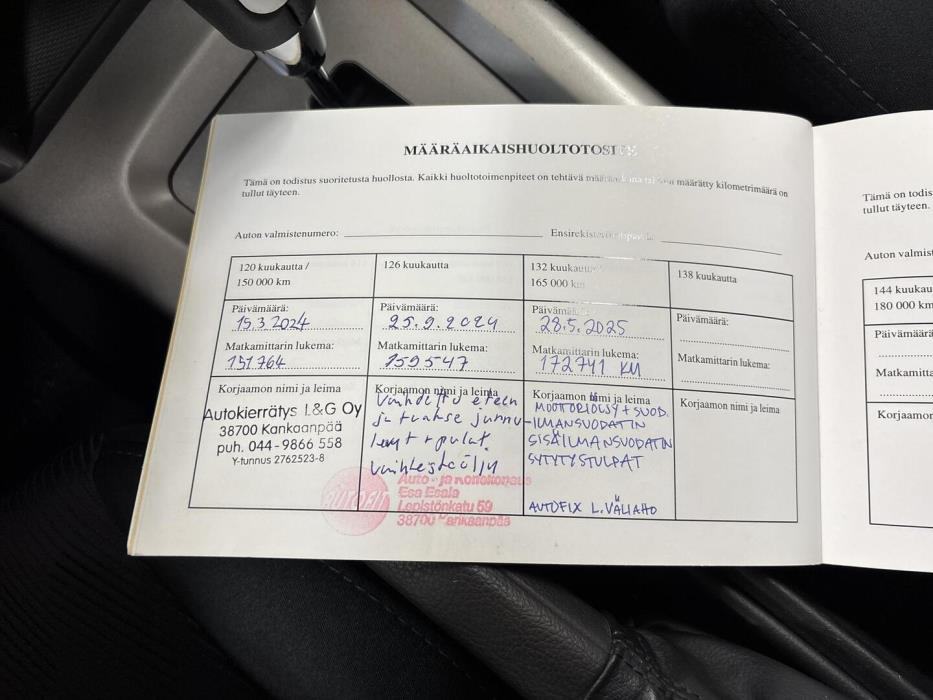 MÄÄRÄAIKAISHUOLTOTOSITE
Tämä on todistus suoritetusta huollosta. Kaikki huoltotoimenpiteet on tehtävä määräaikana tai kun määrätty kilometrimäärä on
tullut täyteen.
Auton valmistenumero: Ensirekisteröintipäivä:
120 kuukautta /
150 000 km
Päivämäärä:
15.3.2024
Matkamittarin lukema:
151764
Korjaamon nimi ja leima
Autokierrätys L&G Oy
38700 Kankaanpää
puh. 044-9866 558
Y-tunnus 2762523-8
126 kuukautta
Päivämäärä:
25.9.2024
Matkamittarin lukema:
159547
Korjaamon nimi ja leima
Vaihdettu eteen
ja taakse jarru-
levyt + palat
vaihteistoöljy
AUTOFIT
Auto- ja konekorjaus
Esa Esala
Lepistönkatu 59
38700 Kankaanpää
132 kuukautta
165 000 km
Päivämäärä:
28.5.2025
Matkamittarin lukema:
172741 KM
Korjaamon nimi ja leima
MOOTTORIÖLJY + SUOD.
ILMANSUODATIN
SISÄILMANSUODATIN
SYTYTYSTULPAT
AUTOFIX L. VÄLIAHO
138 kuukautta
Päivämäärä:
Matkamittarin lukema:
Korjaamon nimi ja leima
Tämä on todis
tullut täyteen.
Auton valmist
144 kuukau
180 000 km
Päivämäärä
Matkamitta
Korjaamon